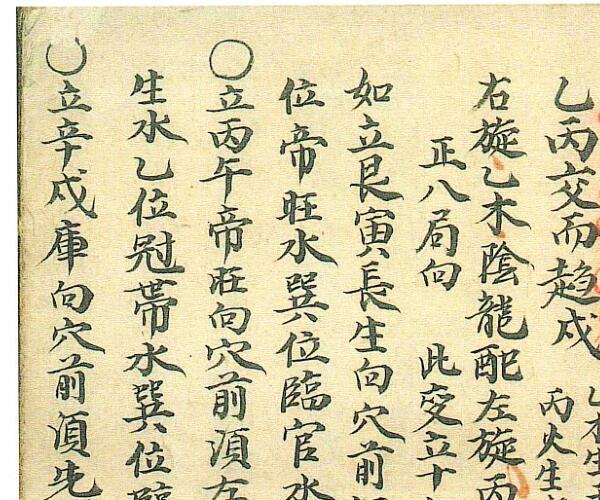 乙丙交而趋戌
乙木生
丙火生
右旋乙木陰龍配左旋丙
正八局向 此变立十
如立艮寅長生向穴前
位帝旺水巽位臨官水
〇立丙午帝旺向穴前須左
生水乙位冠帶水巽位臨
〇立辛戌庫向穴前須先